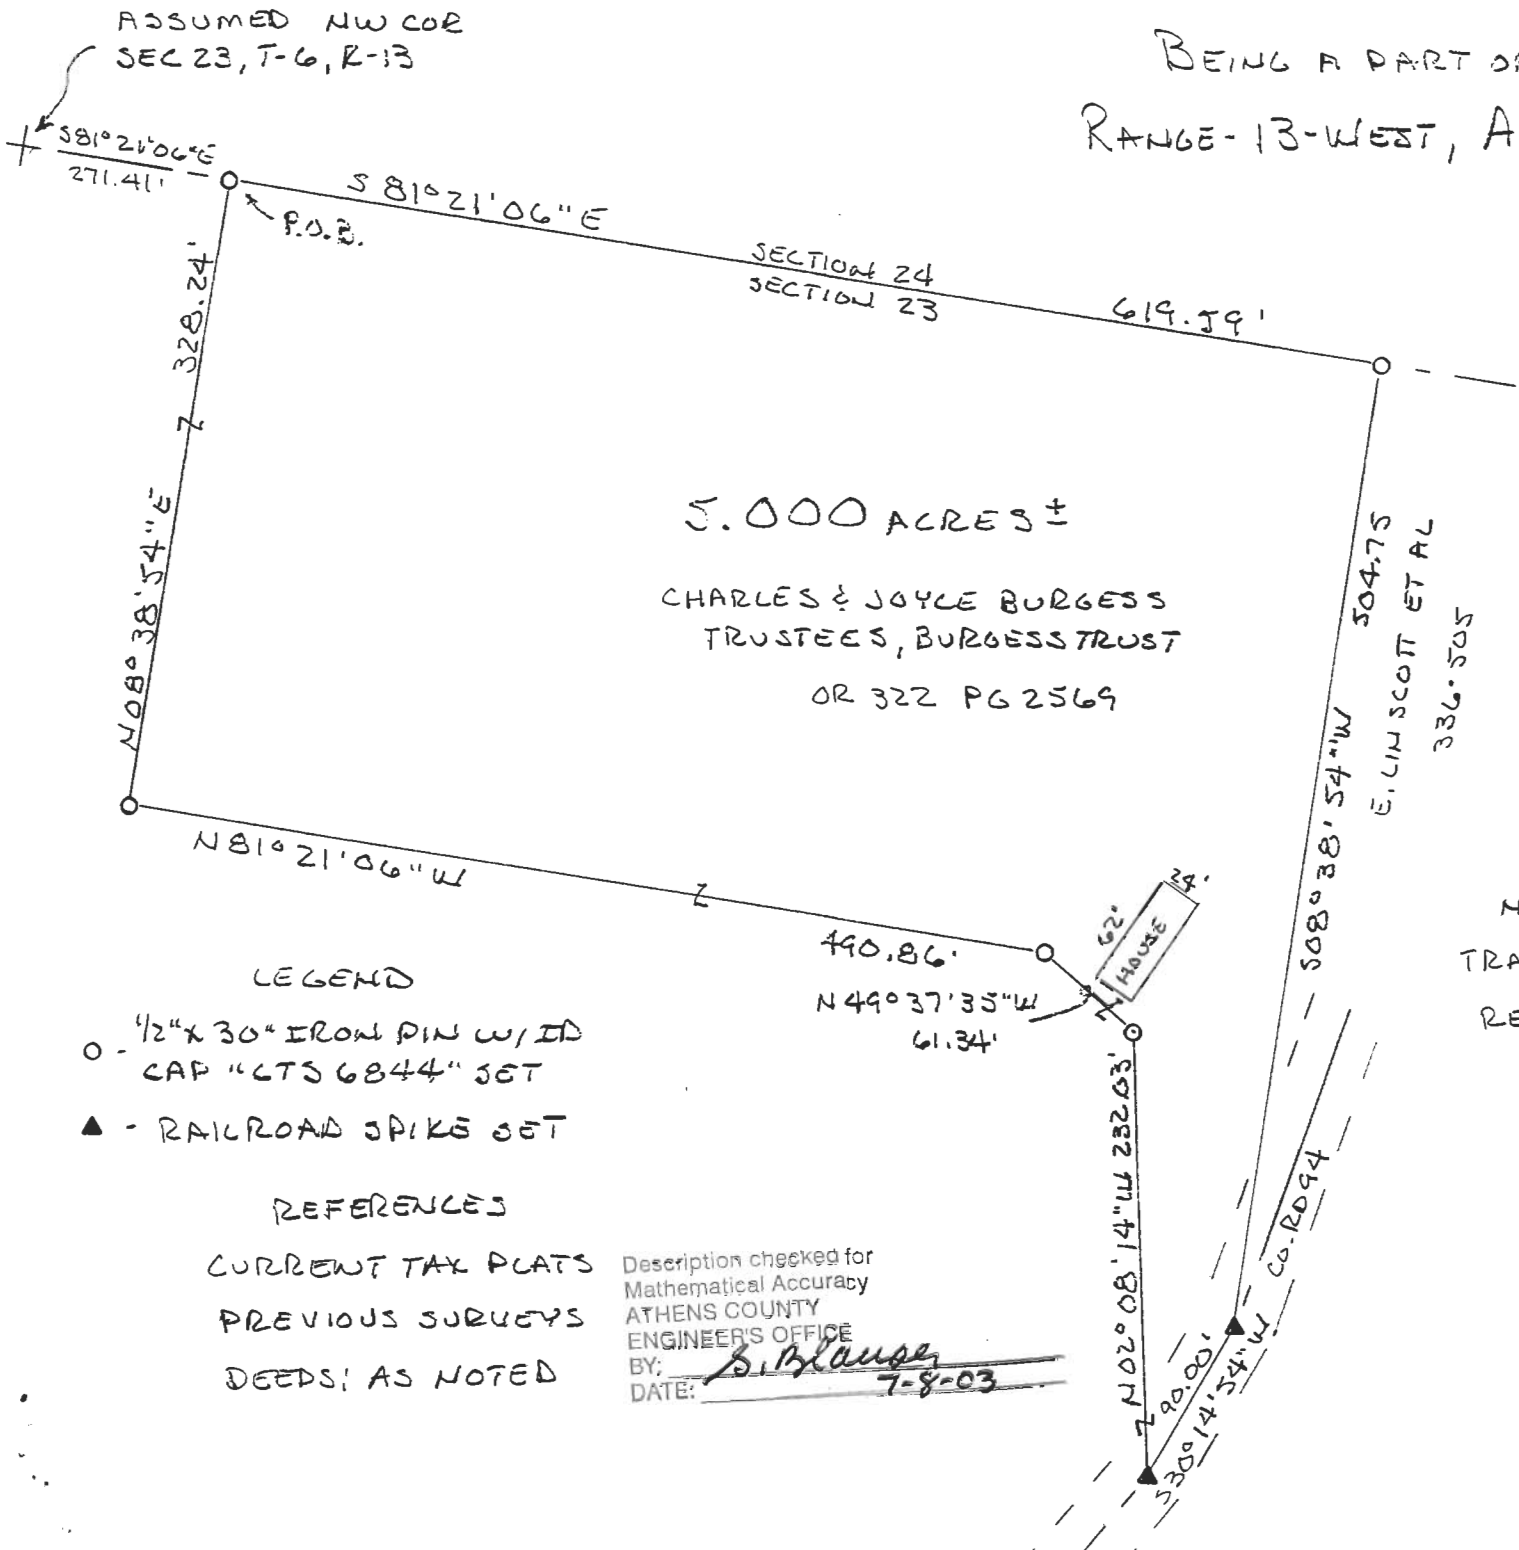 ASSUMED NW COR
SEC 23, T-6, R-13
BEING A PART OF
RANGE-13-WEST, A
S81°21'06"E
271.41'
P.O.B.
S 81°21'06"E
SECTION 24
SECTION 23
619.59'
328.24'
N08°38'54"E
5.000 ACRES ±
CHARLES & JOYCE BURGESS
TRUSTEES, BURGESS TRUST
OR 322 PG 2569
504.75
S08°38'54"W
E. LINSCOTT ET AL
336-505
N81°21'06"W
490.86'
62'
24'
HOUSE
N49°37'35"W
61.34'
TRA
RE
LEGEND
1/2" X 30" IRON PIN W/ID
CAP "CTS 6844" SET
- RAILROAD SPIKE SET
N02°08'14"W 232.03'
CO. RD 94
90.00'
S30°14'54"W
REFERENCES
CURRENT TAX PLATS
PREVIOUS SURVEYS
DEEDS: AS NOTED
Description checked for
Mathematical Accuracy
ATHENS COUNTY
ENGINEER'S OFFICE
BY: S. Blauser
DATE: 7-8-03